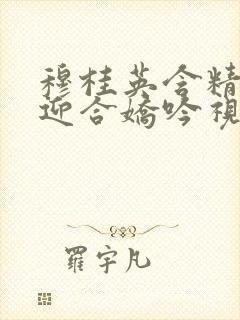 穆桂英含精
迎合嬌吟視
羅宇凡